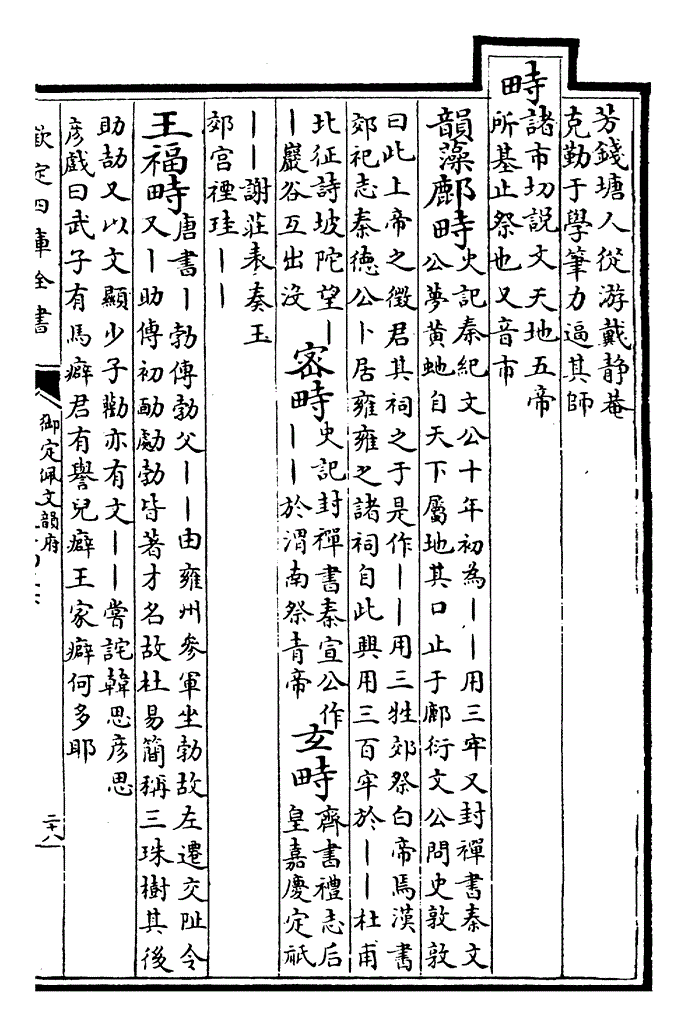 芳錢塘人從游戴静菴
克勤于學筆力逼其師
畤
諸市切説文天地五帝
所基止祭也又音市
韻藻鄜畤
史記秦紀文公十年初為丨丨用三牢又封禪書秦文
公夢黄虵自天下屬地其口止于鄜衍文公問史敦敦
曰此上帝之徵君其祠之于是作丨丨用三牲郊祭白帝焉漢書
郊祀志秦德公卜居雍雍之諸祠自此興用三百牢於丨丨杜甫
北征詩坡陀望丨
丨巖谷互出沒
密畤
史記封禪書秦宣公作
丨丨於渭南祭青帝
玄畤
齊書禮志后
皇嘉慶定祇
丨丨謝莊表奏玉
郊宫禋珪丨丨
王福畤
唐書丨勃傳勃父丨丨由雍州參軍坐勃故左遷交阯令
又丨助傳初勔勮勃皆著才名故杜易簡稱三珠樹其後
助劼又以文顯少子勸亦有文丨丨嘗詫韓思彦思
彦戲曰武子有馬癖君有譽兒癖王家癖何多耶
欽定四庫全書
御定佩文韻府
二十八